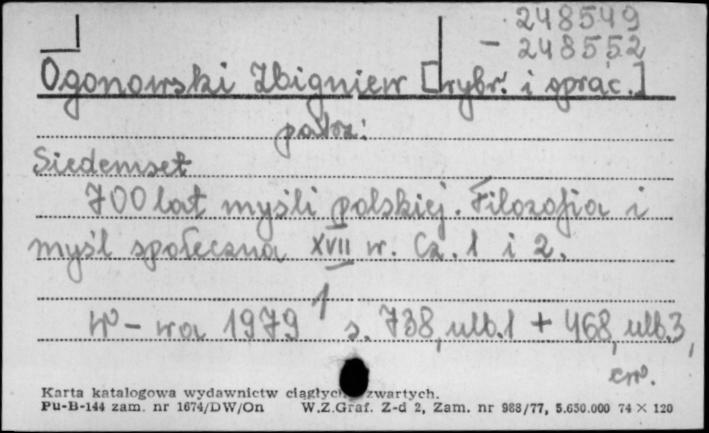 248549
- 248552
Ogonowski Zbigniew [wybr. i oprac.]
patrz:
Siedemset
700 lat myśli polskiej. Filozofia i
myśl społeczna XVII w. Cz. 1 i 2.
1
W-wa 1979 s. 738, ulb. 1 + 468, ulb. 3,
Karta katalogowa wydawnictw ciągłych zwartych.
Pu-B-144 zam. nr 1674/DW/On W.Z.Graf. Z-d 2, Zam. nr 988/77, 5.650.000 74 × 120